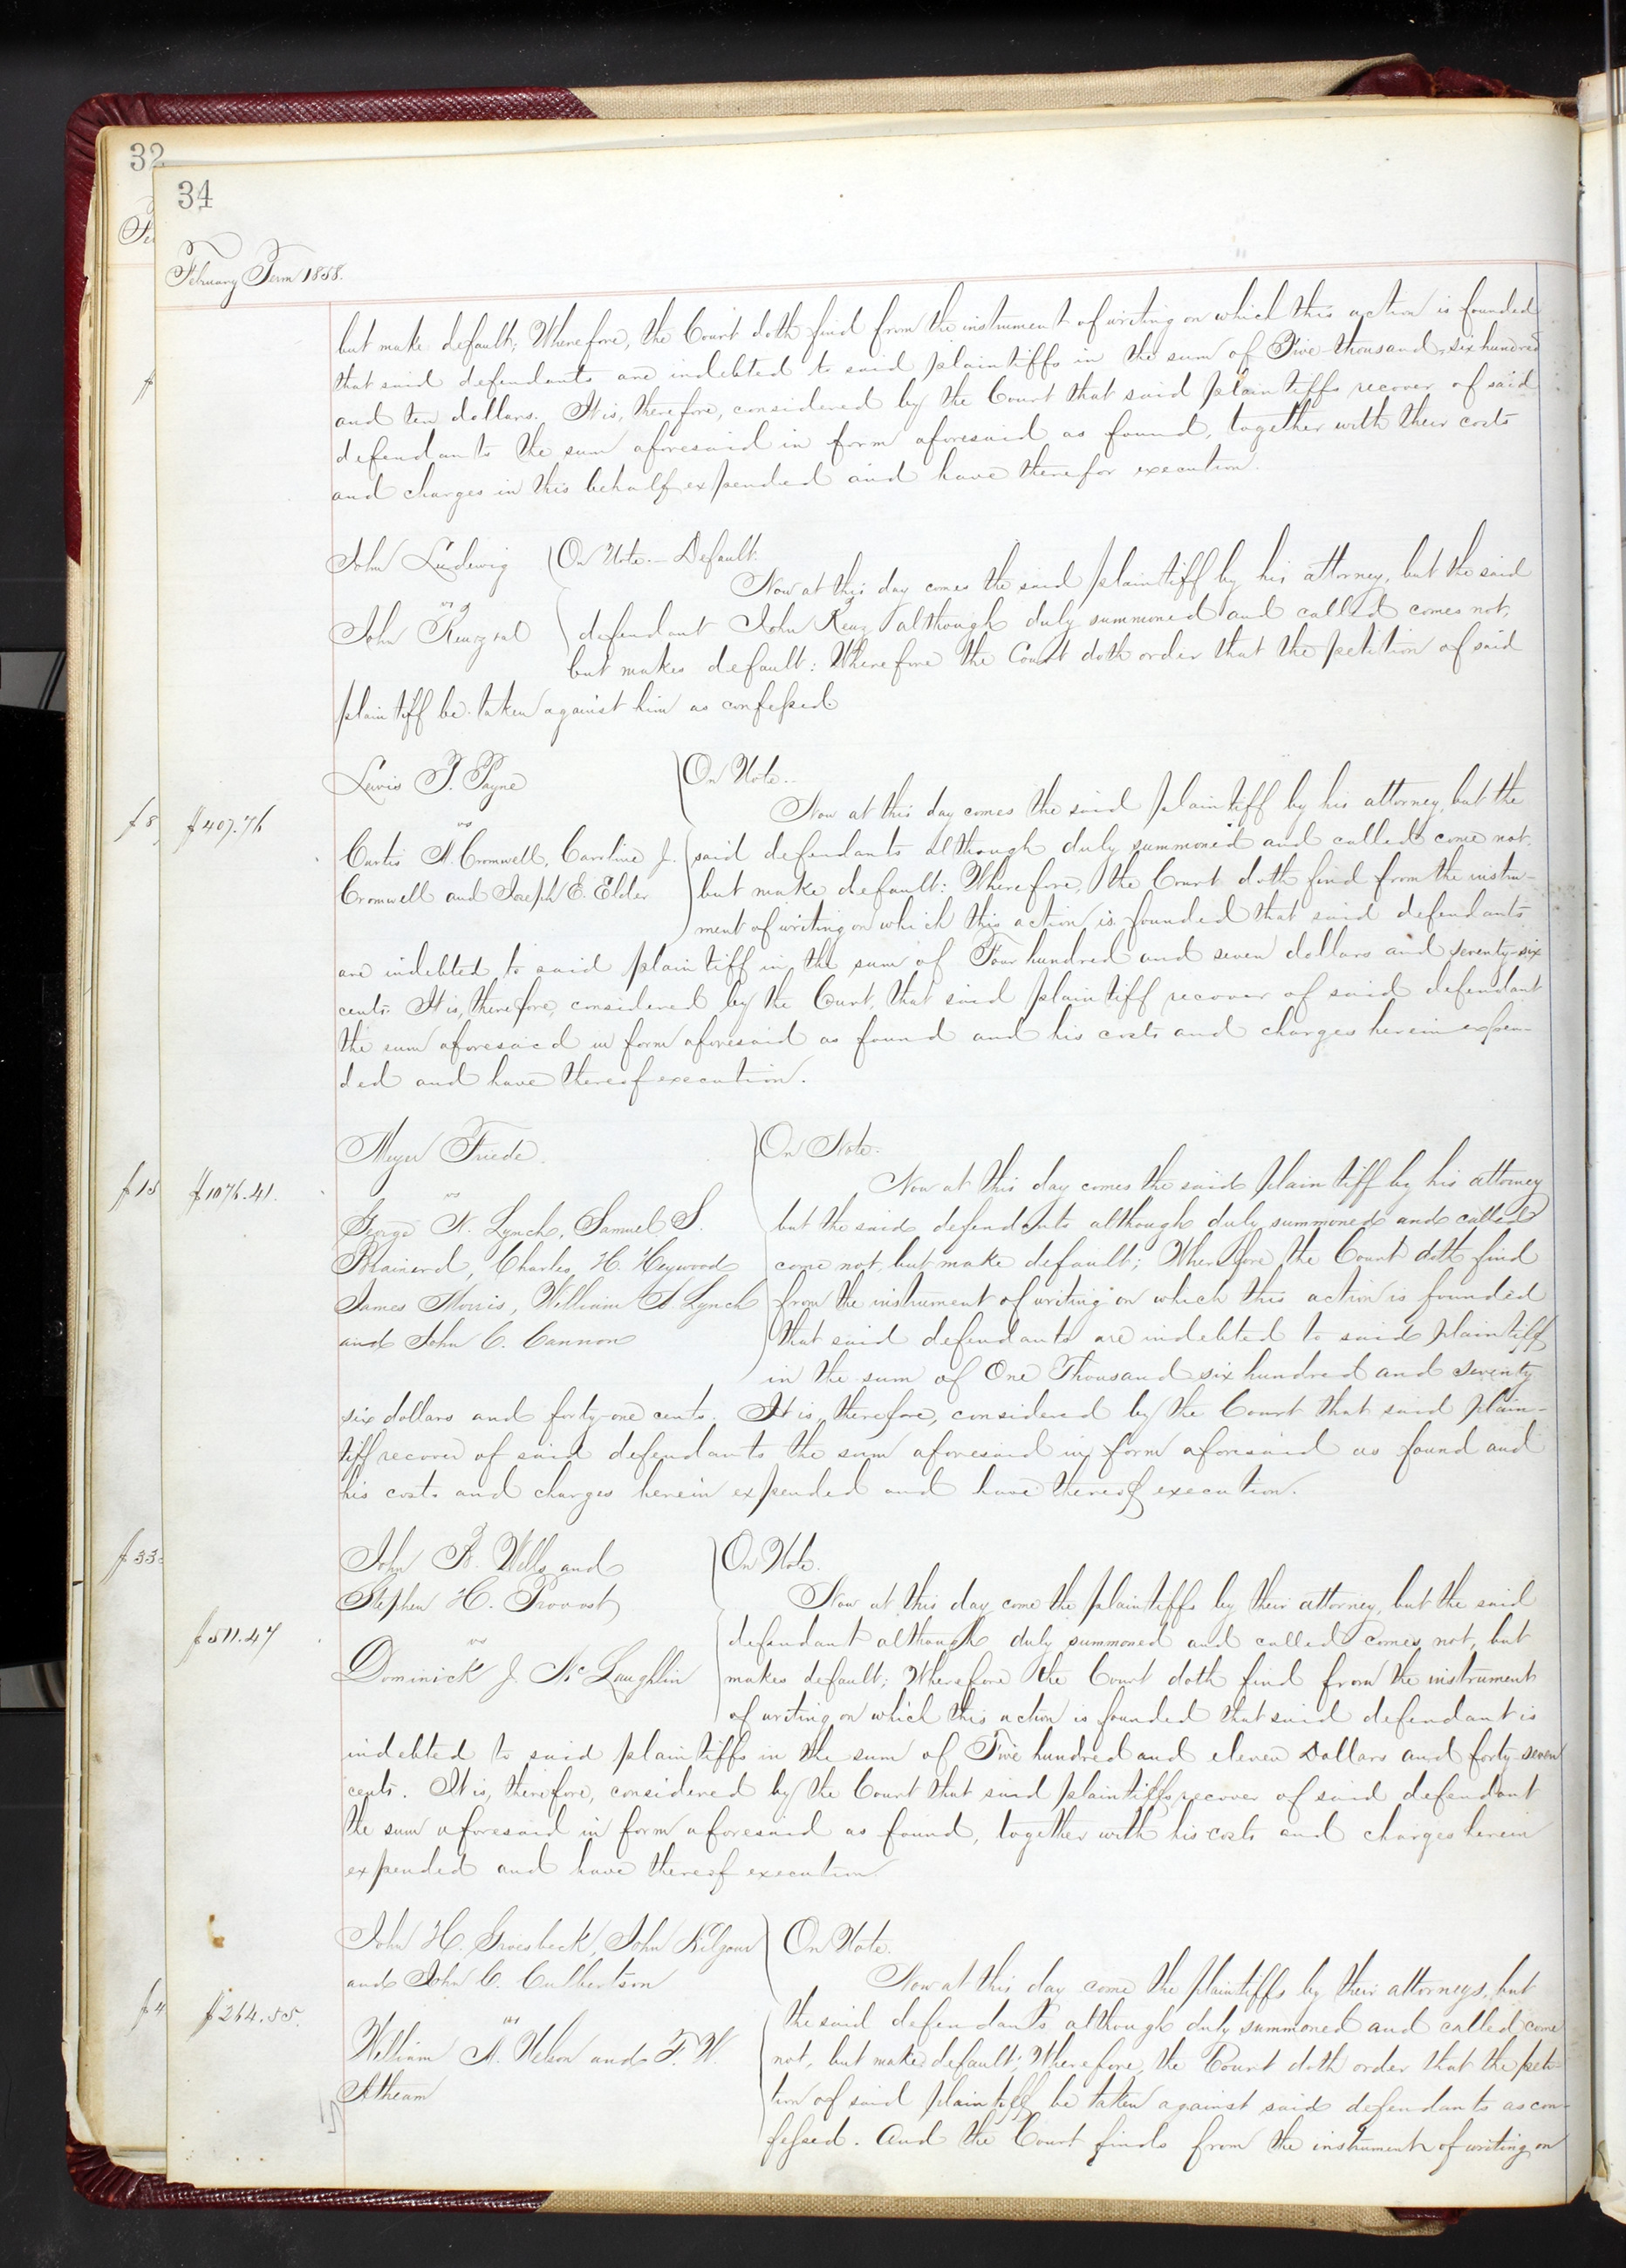 32
34
February Term 1858.
but make default; Wherefore, the Court doth find from the instrument of writing on which this action is founded
that said defendants are indebted to said plaintiffs in the sum of Five thousand six hundred
and ten dollars. It is, therefore, considered by the Court that said plaintiffs recover of said
defendants the sum aforesaid in form aforesaid as found, together with their costs
and charges in this behalf expended and have therefor execution.
John Ludewig
vs
John Renz et al
On Note. – Default.
Now at this day comes the said plaintiff by his attorney, but the said
defendant John Renz although duly summoned and called comes not,
but makes default: Wherefore the Court doth order that the petition of said
plaintiff be taken against him as confessed
$407.76
Lewis P. Payne
vs
Curtis A. Cromwell, Caroline J.
Cromwell and Joseph E. Elder
On Note.
Now at this day comes the said plaintiff by his attorney, but the
said defendants although duly summoned and called come not,
but make default: Wherefore, the Court doth find from the instru-
ment of writing on which this action is founded that said defendants
are indebted to said plaintiff in the sum of Four hundred and seven dollars and seventy-six
cents. It is, therefore, considered by the Court, that said plaintiff recover of said defendant
the sum aforesaid in form aforesaid as found and his costs and charges herein expen-
ded and have thereof execution.
$1076.41.
Meyer Friede.
vs
George N. Lynch, Samuel S.
Brainerd, Charles H. Heywood
James Morris, William A. Lynch
and John C. Cannon
On Note.
Now at this day comes the said plaintiff by his attorney
but the said defendants although duly summoned and called
come not, but make default; Wherefore the Court doth find
from the instrument of writing on which this action is founded
that said defendants are indebted to said plaintiff
in the sum of One Thousand six hundred and seventy
six dollars and forty-one cents. It is, therefore, considered by the Court that said plain-
tiff recover of said defendants the sum aforesaid in form aforesaid as found and
his costs and charges herein expended and have thereof execution.
$511.47
John B. Wells and
Stephen H. Provost
vs
Dominick J. McLaughlin
On Note.
Now at this day come the plaintiffs by their attorney, but the said
defendant although duly summoned and called comes not, but
makes default; Wherefore the Court doth find from the instrument
of writing on which this action is founded that said defendant is
indebted to said plaintiffs in the sum of Five hundred and eleven Dollars and forty-seven
cents. It is, therefore, considered by the Court that said plaintiffs recover of said defendant
the sum aforesaid in form aforesaid as found, together with his costs and charges herein
expended and have thereof execution.
$264.55.
John H. Groesbeck, John Kilgour
and John C. Culbertson
vs
William A. Nelson and F. W.
On Note.
Now at this day come the plaintiffs by their attorneys, but
the said defendants although duly summoned and called come
not, but make default; Wherefore, the Court doth order that the peti-
tion of said plaintiff be taken against said defendants as con-
fessed. And the Court finds from the instrument of writing on